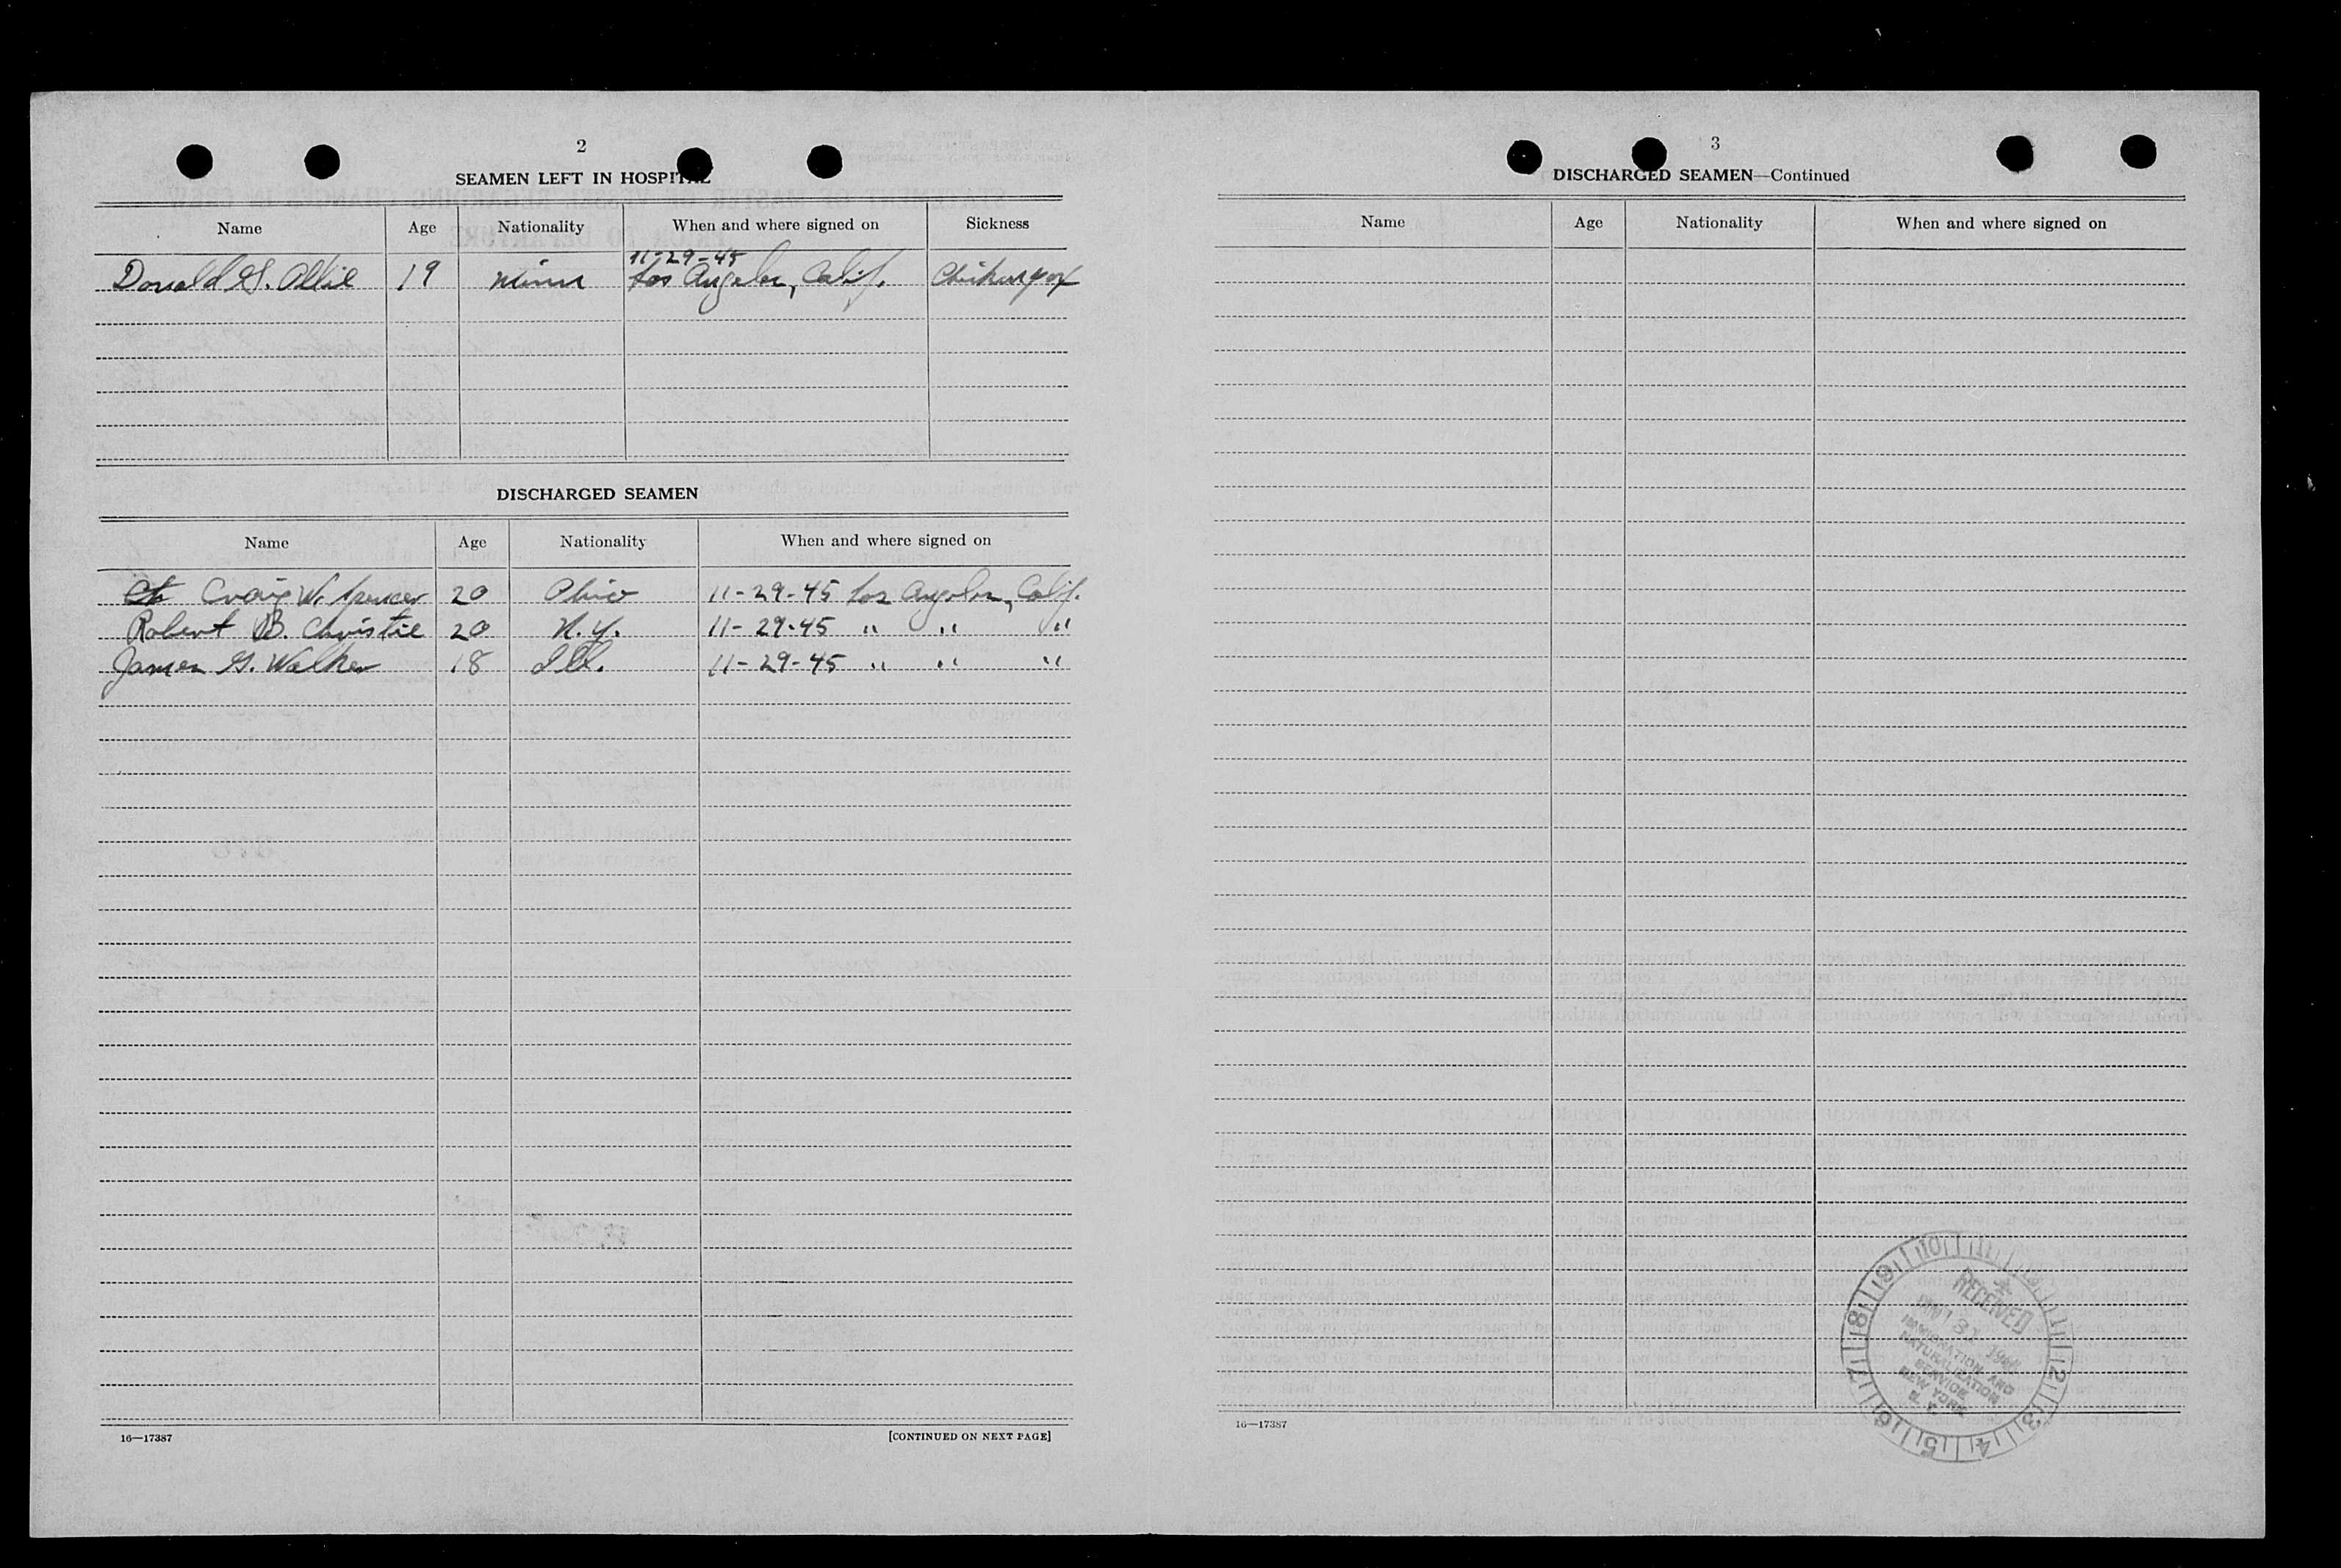 2
SEAMEN LEFT IN HOSPITAL
Name Age Nationality When and where signed on Sickness
11-29-45
Donald G. Ollie 19 Minn Los Angeles, Calif. Chickenpox
DISCHARGED SEAMEN
Name Age Nationality When and where signed on
Craig W. Spencer 20 Ohio 11-29-45 Los Angeles, Calif.
Robert B. Christie 20 N.Y. 11-29-45 " " "
James G. Walker 18 Ill. 11-29-45 " " "
16—17387 [CONTINUED ON NEXT PAGE]
3
DISCHARGED SEAMEN—Continued
Name Age Nationality When and where signed on
16—17387
10 11 1 2 3 4 5 6 7 8 9
RECEIVED
IMMIGRATION AND
NATURALIZATION
SERVICE
NEW YORK
N. Y.